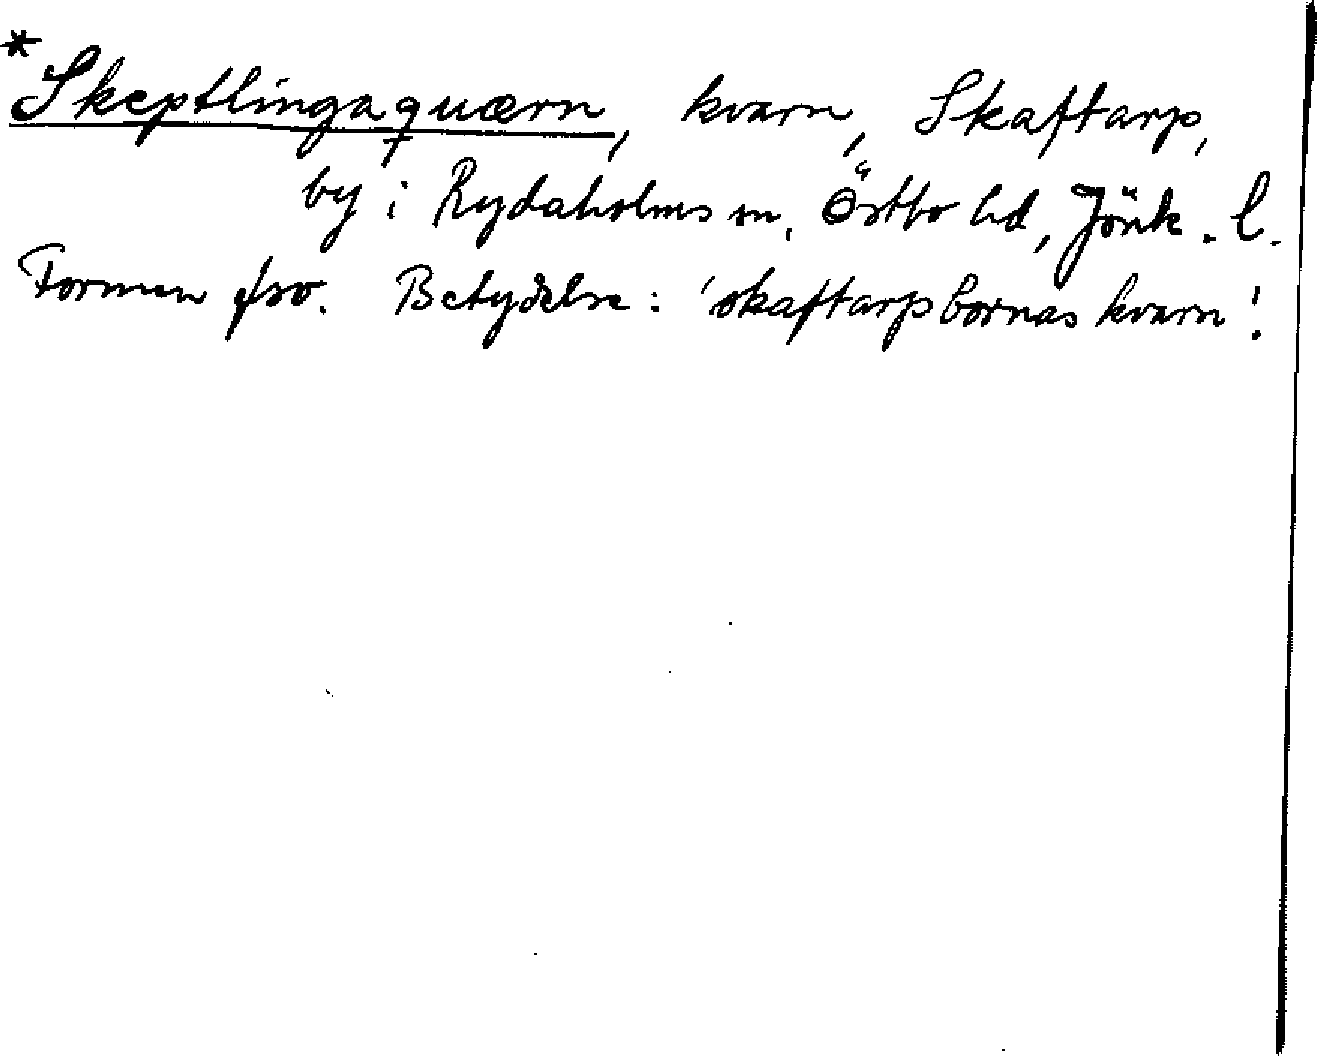 *Skeptlingaquærn, kvarn, Skaftarp,
by i Rydaholms sn, Östbo hd, Jönk. l.
Formen fsv. Betydelse: 'skaftarpsbornas kvarn'.